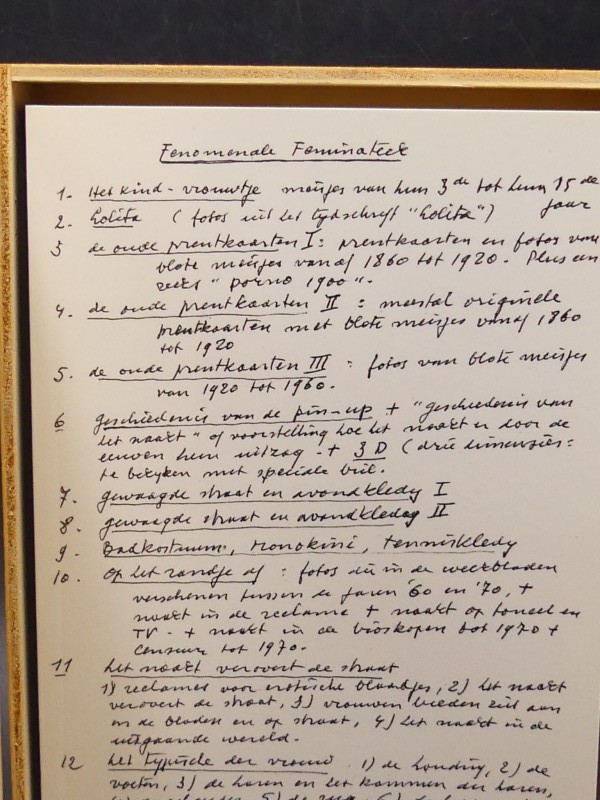 Fenomenale Feminateek
1. Het kind-vrouwtje meisjes van hun 3de tot hun 15de jaar
2. Lolita (fotos uit het tijdschrift "Lolita")
3 de oude prentkaarten I: prentkaarten en fotos van
blote meisjes vanaf 1860 tot 1920. Plus een
reeks "porno 1900".
4. de oude prentkaarten II : meestal originele
prentkaarten met blote meisjes vanaf 1860
tot 1920
5. de oude prentkaarten III : fotos van blote meisjes
van 1920 tot 1960.
6 geschiedenis van de pin-up + "geschiedenis van
het naakt" of voorstelling hoe het naakt er door de
eeuwen heen uitzag. + 3D (drie dimensies:
te bekijken met speciale bril.
7. gewaagde straat en avondkledij I
8. gewaagde straat en avondkledij II
9. Badkostuum, monokini, tenniskledij
10. Op het randje af : fotos die in de weekbladen
verschenen tussen de jaren '60 en '70, +
naakt in de reclame + naakt op toneel en
TV. + naakt in de bioskopen tot 1970 +
censuur tot 1970.
11 het naakt verovert de straat
1) reclames voor erotische blaadjes, 2) het naakt
verovert de straat, 3) vrouwen bieden zich aan
in de bladen en op straat, 4) het naakt in de
uitgaande wereld.
12 het typische der vrouw. 1) de houding, 2) de
voeten, 3) de haren en het kammen der haren,